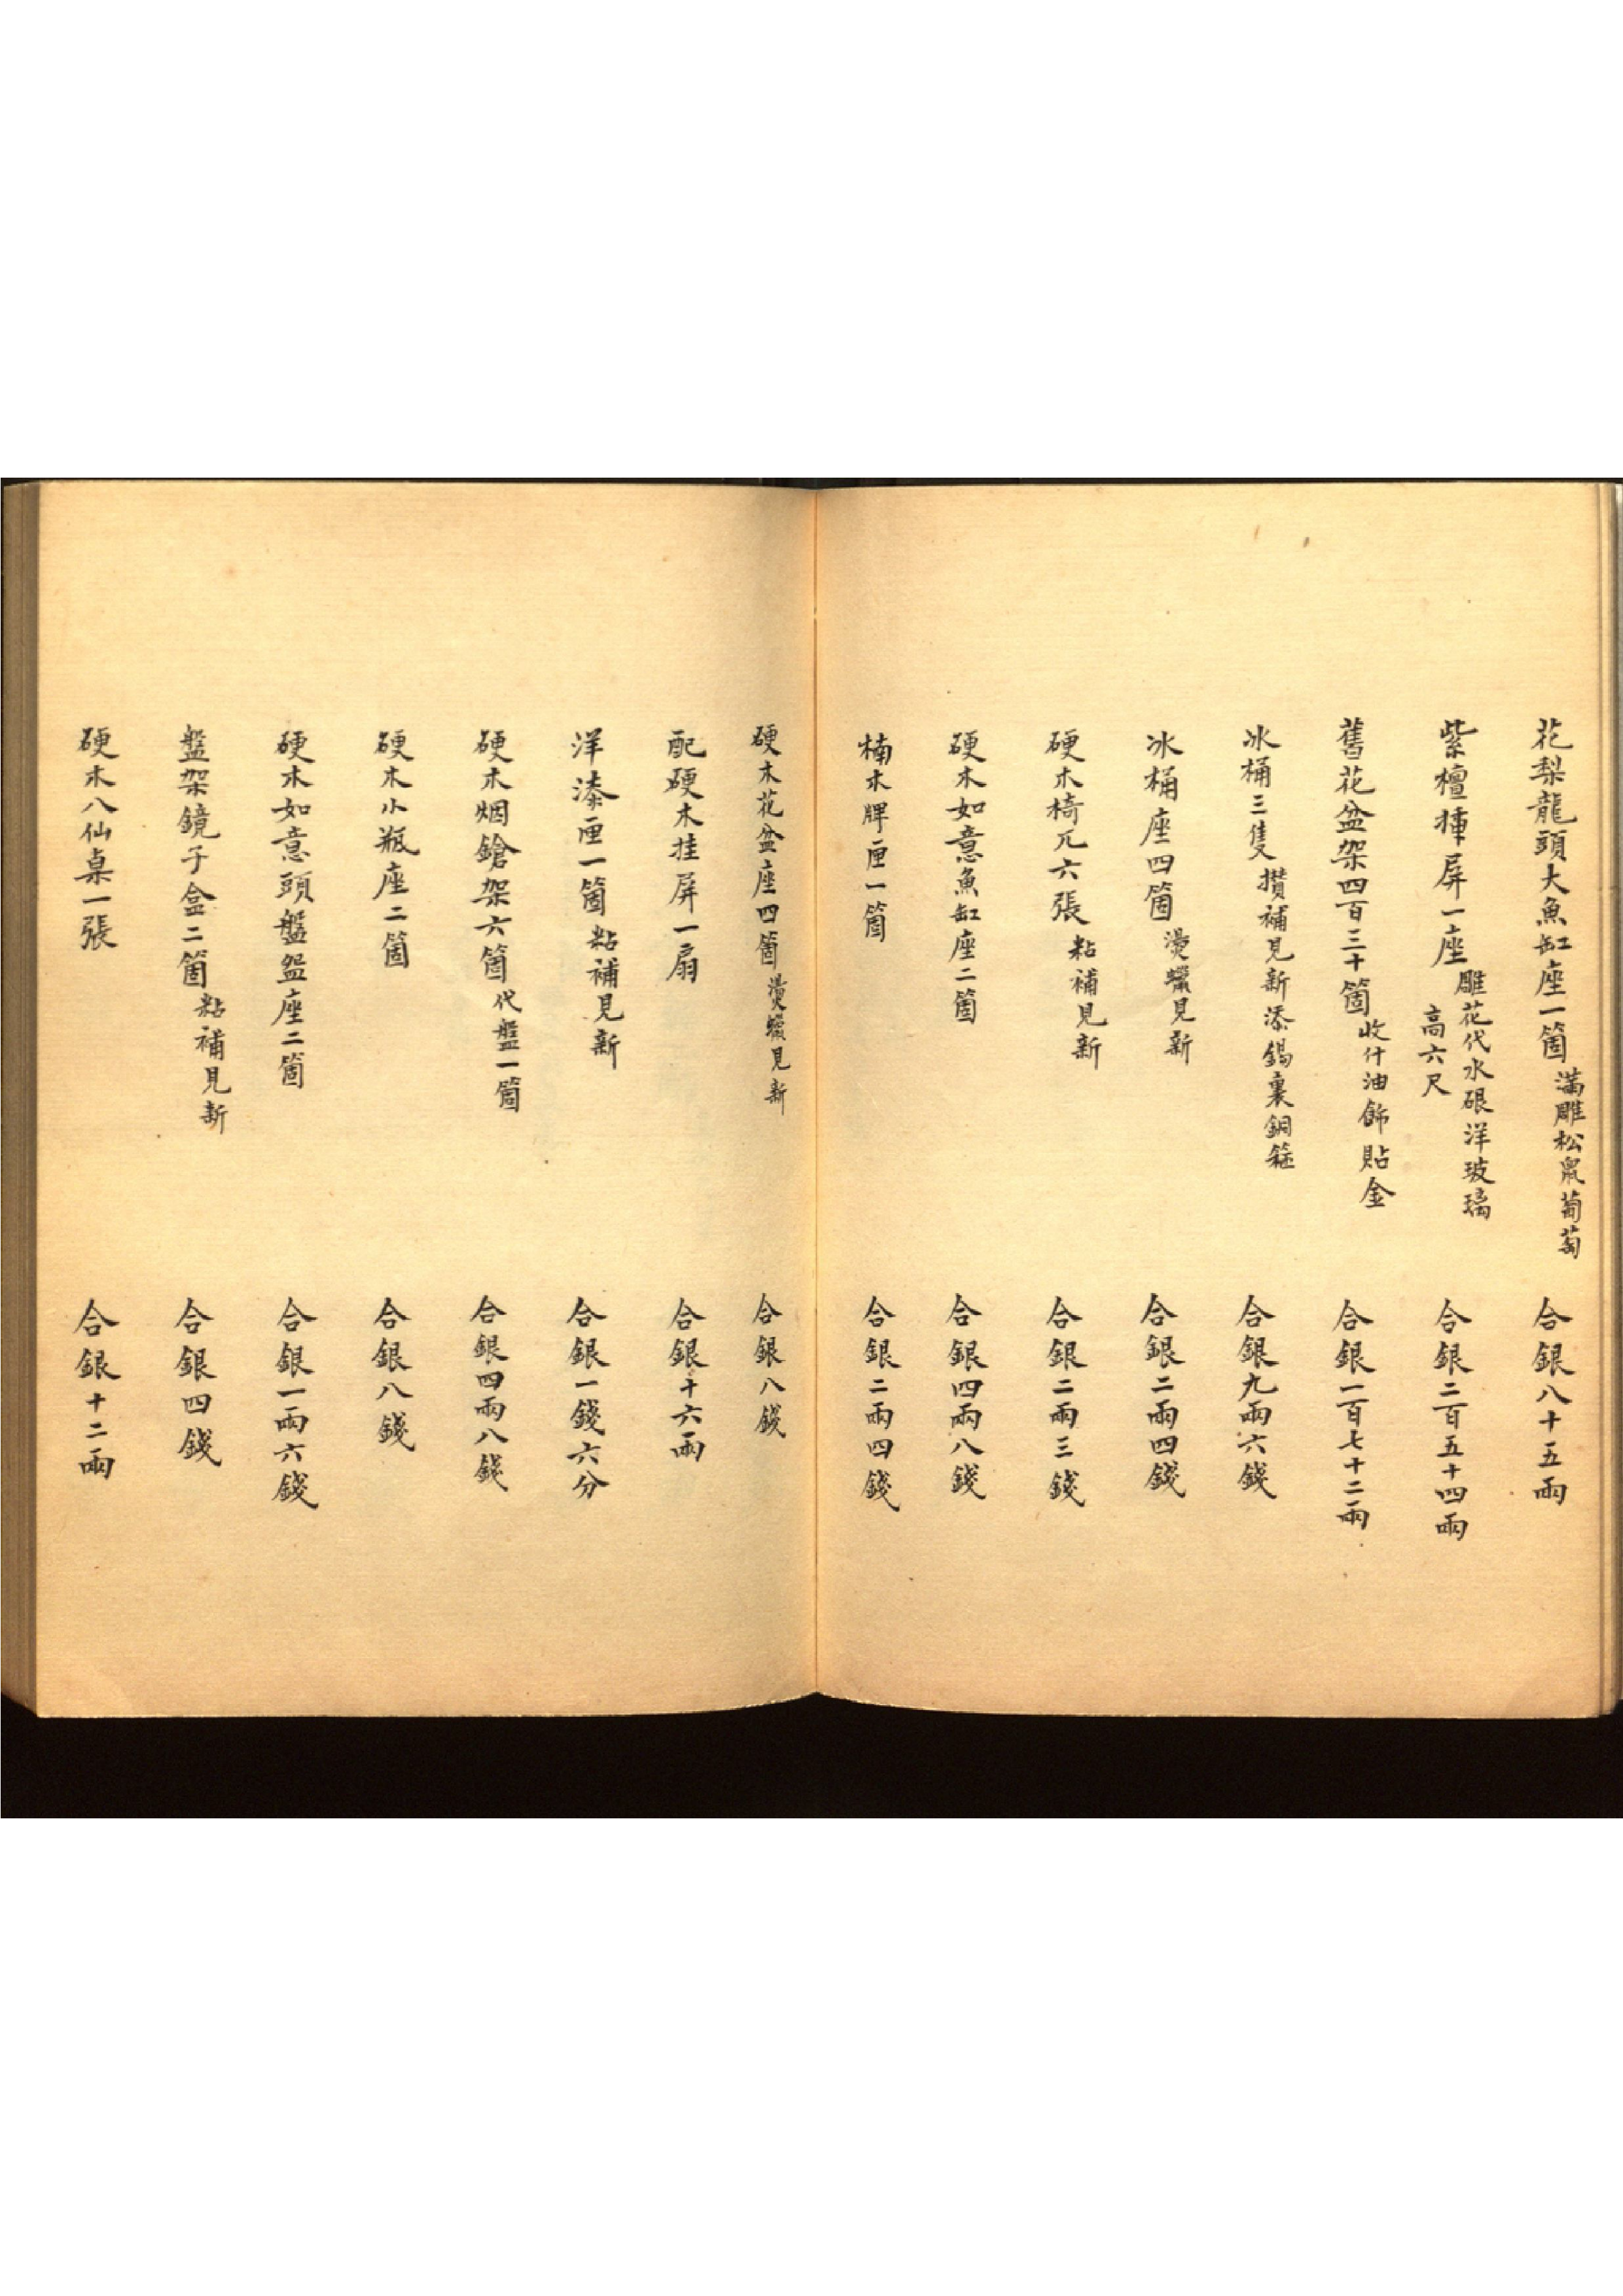 花梨龍頭大魚缸座一箇 滿雕松鼠葡萄 合銀八十五兩
紫檀揷屏一座 雕花代水硍洋玻璃 高六尺 合銀二百五十四兩
舊花盆架四百三十箇 收什油飾貼金 合銀一百七十二兩
冰桶三隻 攅補見新添錫裏銅箍 合銀九兩六錢
冰桶座四箇 燙蠟見新 合銀二兩四錢
硬木椅兀六張 粘補見新 合銀二兩三錢
硬木如意魚缸座二箇 合銀四兩八錢
楠木牌匣一箇 合銀二兩四錢
硬木花盆座四箇 燙蠟見新 合銀八錢
配硬木挂屏一扇 合銀十六兩
洋漆匣一箇 粘補見新 合銀一錢六分
硬木烟鎗架六箇 代盤一箇 合銀四兩八錢
硬木小瓶座二箇 合銀八錢
硬木如意頭盤盌座二箇 合銀一兩六錢
盤架鏡子盒二箇 粘補見新 合銀四錢
硬木八仙桌一張 合銀十二兩